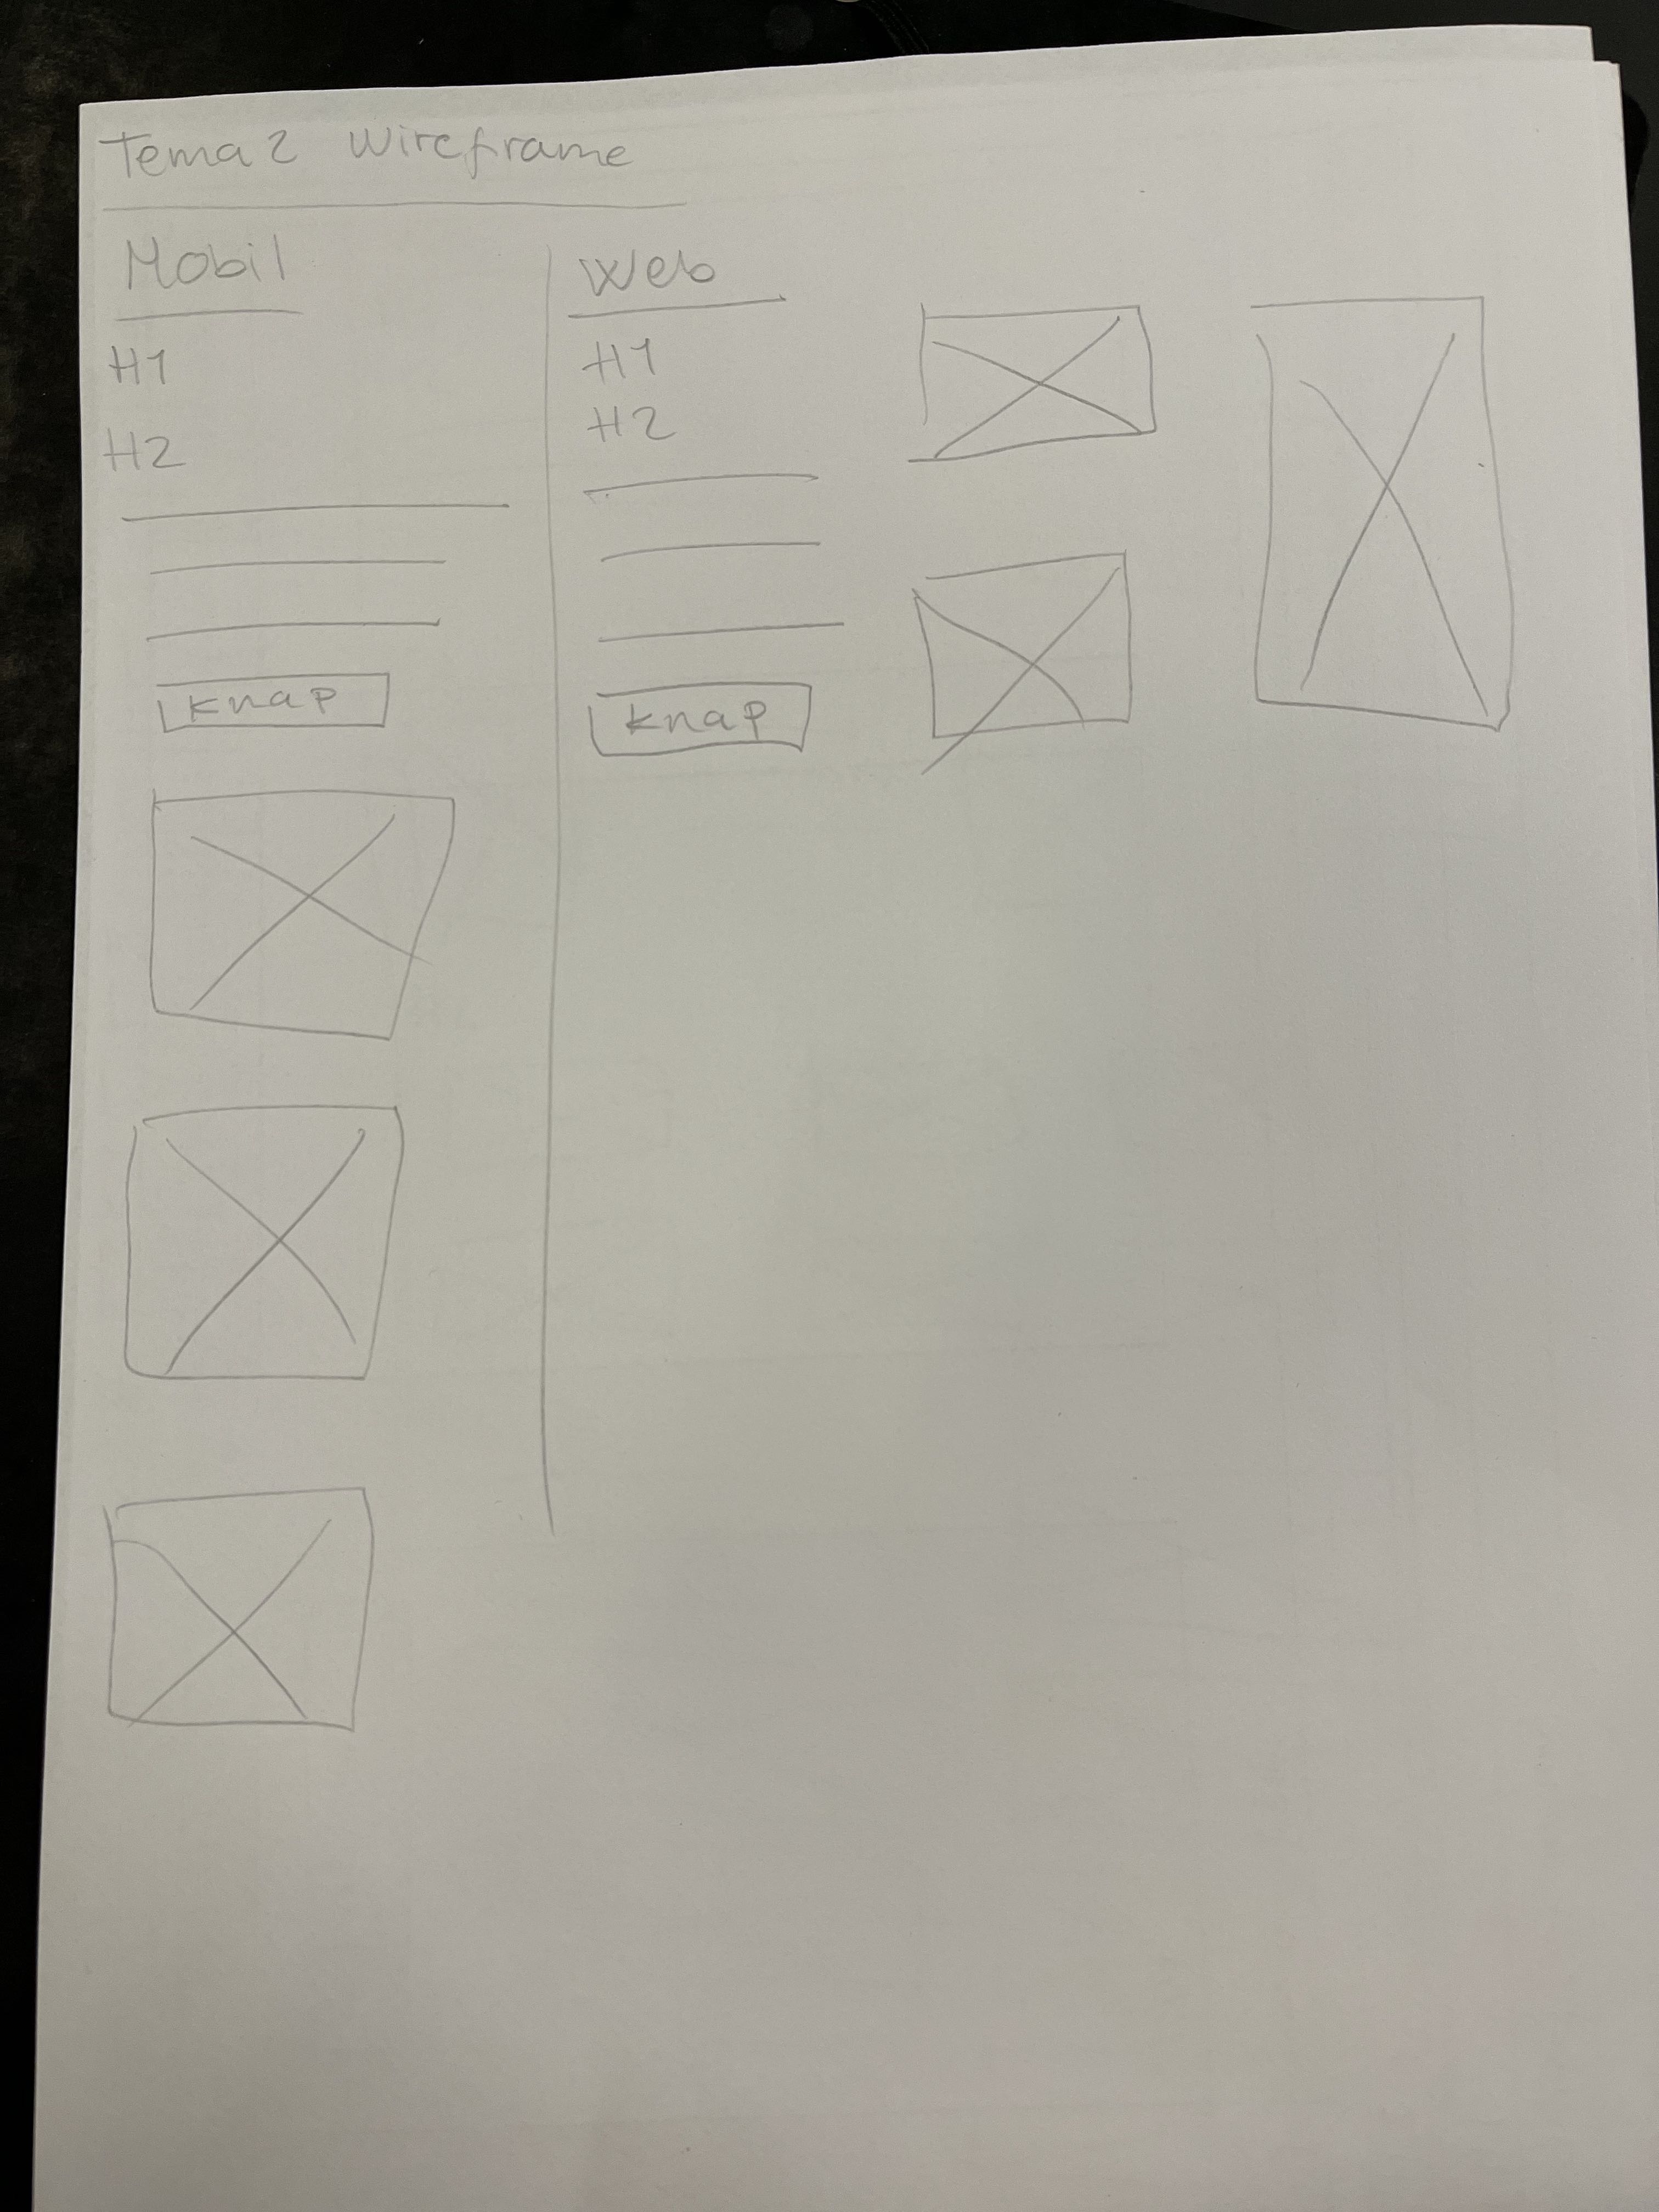 Tema 2 Wireframe
Mobil
H1
H2
Knap
Web
H1
H2
Knap